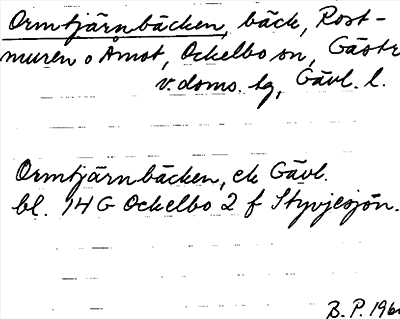 Ormtjärnbäcken, bäck, Rost-
muren o Åmot, Ockelbo sn, Gästr
v. doms. tg, Gävl. l.
Ormtjärnbäcken, ek Gävl.
bl. 14 G Ockelbo 2 f Styvjesjön.
B. P. 196